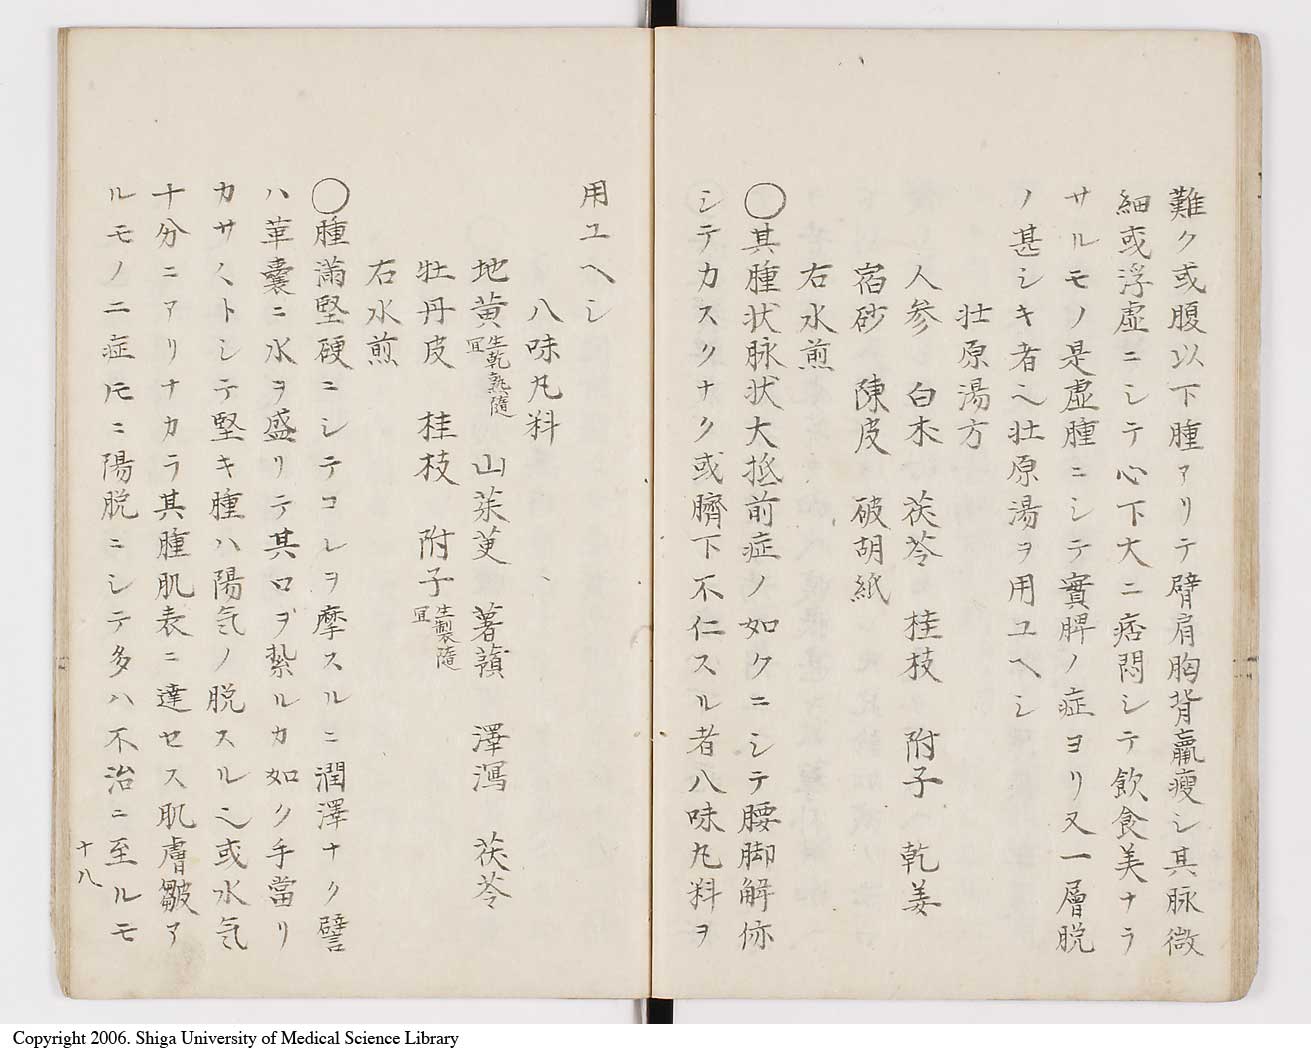 難ク或腹以下腫アリテ臂肩胸背羸瘦シ其脉微
細或浮虚ニシテ心下大ニ痞悶シテ飲食美ナラ
サルモノ是虚腫ニシテ實脾ノ症ヨリ又一層脱
ノ甚シキ者ヘ壮原湯ヲ用ユヘシ
壮原湯方
人参 白朮 茯苓 桂枝 附子 乾姜
宿砂 陳皮 破胡紙
右水煎
〇其腫状脉状大抵前症ノ如クニシテ腰脚解㑊
シテカスクナク或臍下不仁スル者八味丸料ヲ
用ユヘシ
八味丸料
地黄生乾熟隨宜 山茱萸 薯蕷 澤瀉 茯苓
牡丹皮 桂枝 附子生製隨宜
右水煎
〇腫満堅硬ニシテコレヲ摩スルニ潤澤ナク譬
ハ革嚢ニ水ヲ盛リテ其口ヲ紮ルカ如ク手當リ
カサ〱トシテ堅キ腫ハ陽気ノ脱スル也或水気
十分ニアリナカラ其腫肌表ニ達セス肌膚皺ア
ルモノ二症ꪸニ陽脱ニシテ多ハ不治ニ至ルモ
十八
Copyright 2006. Shiga University of Medical Science Library